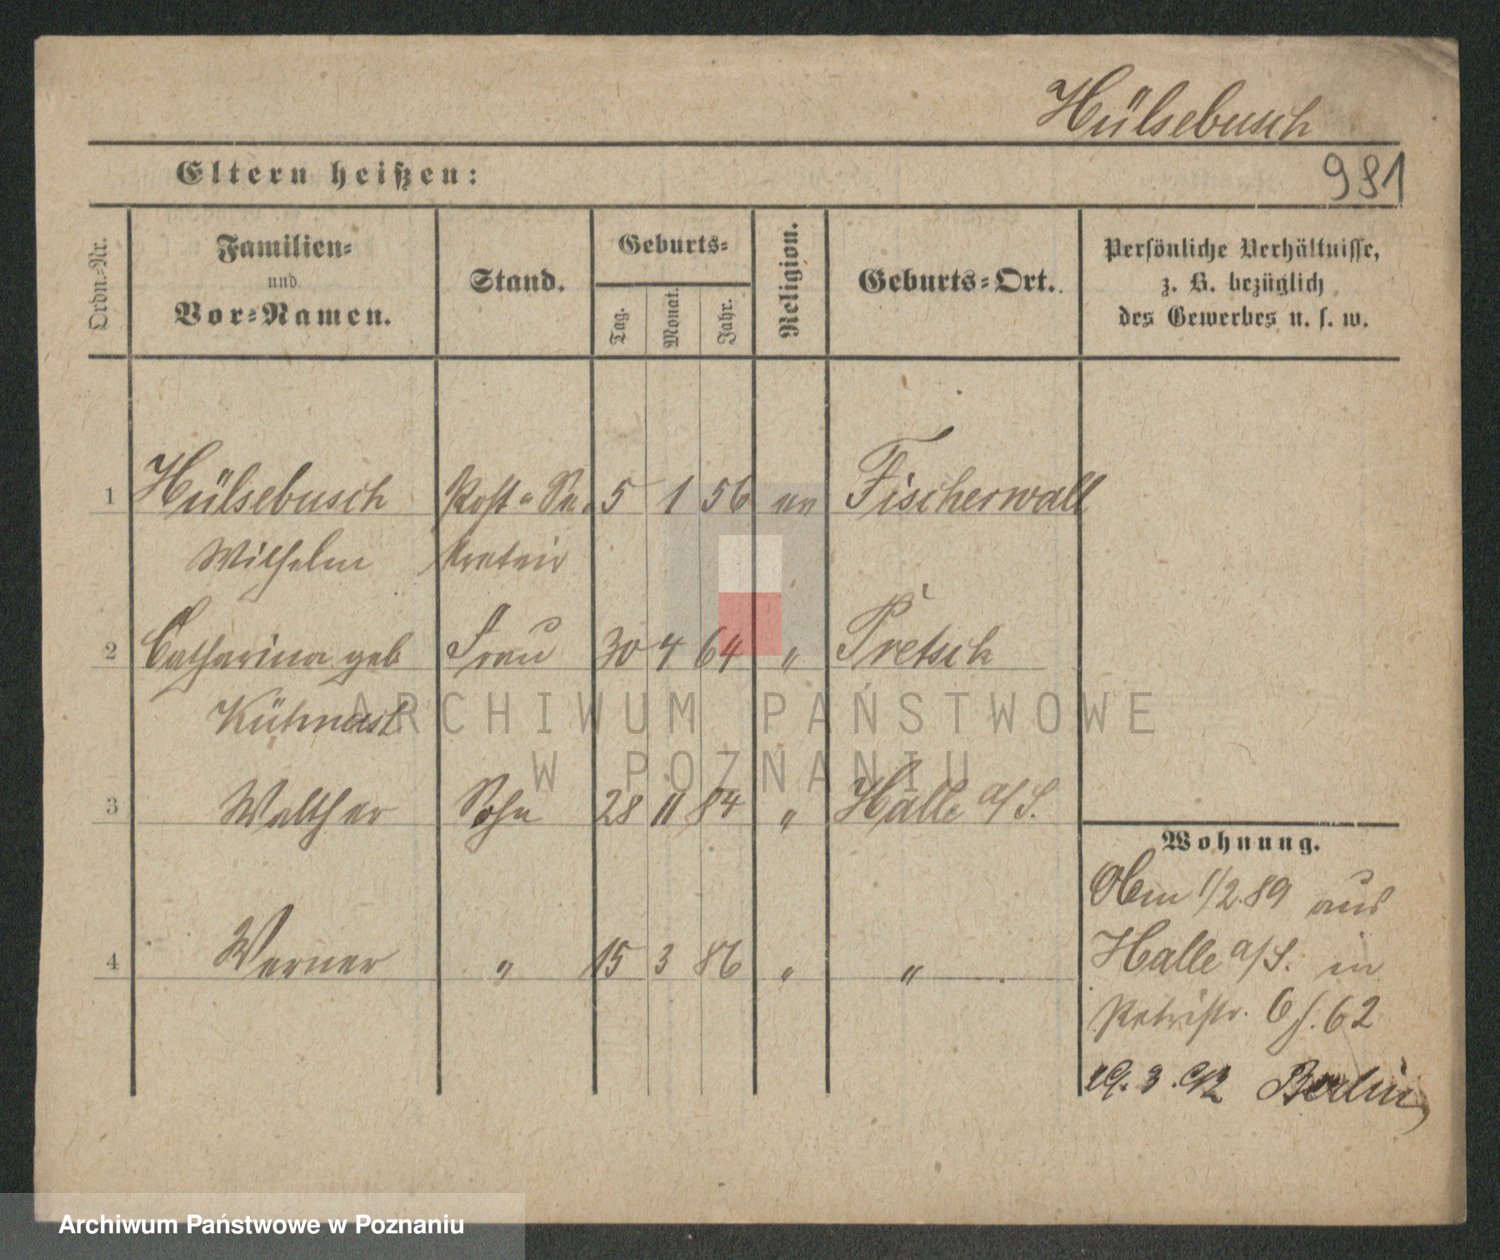 Hülsebusch
981
Eltern heißen:
Ordn.-Nr.
Familien-
und
Vor-Namen.
Stand.
Geburts-
Tag.
Monat.
Jahr.
Religion.
Geburts-Ort.
Persönliche Verhältnisse,
z. B. bezüglich
des Gewerbes u. s. w.
1 Hülsebusch Post-Se- 5 1 56 ev Fischerwall
Wilhelm kretair
2 Catharina geb Frau 30 4 64 " Pretsch
Kühnast
3 Walther Sohn 28 11 84 " Halle a/S.
4 Werner " 15 3 86 " "
Wohnung.
1/2.89 aus
Halle a/S. in
Petristr. 6
19.3.92 Berlin
ARCHIWUM PAŃSTWOWE
W POZNANIU
Archiwum Państwowe w Poznaniu